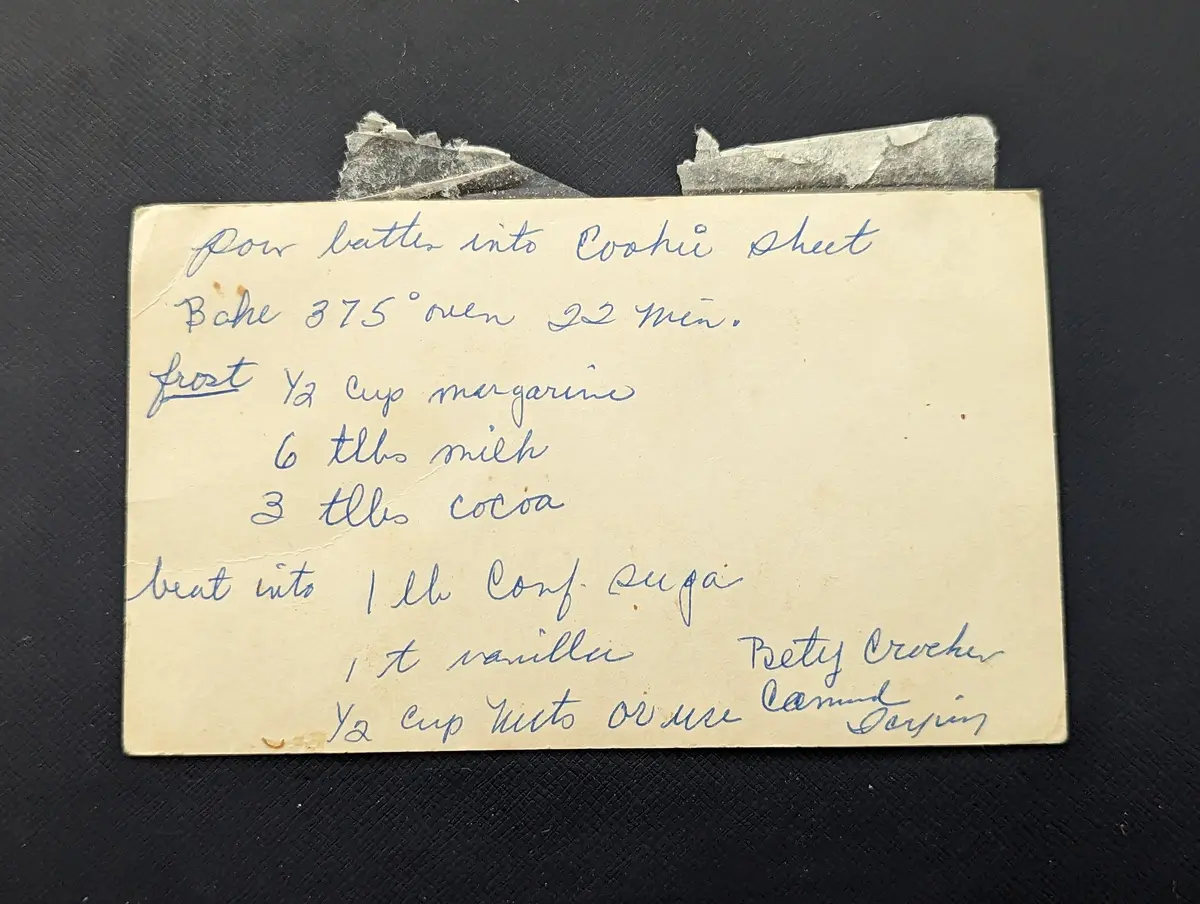 pour batter into Cookie sheet
Bake 375° oven 22 Min.
frost 1/2 cup margarine
6 tlbs milk
3 tlbs cocoa
beat into 1 lb Conf. suga
1 t vanilla
1/2 cup Nuts or use
Bety Crocker